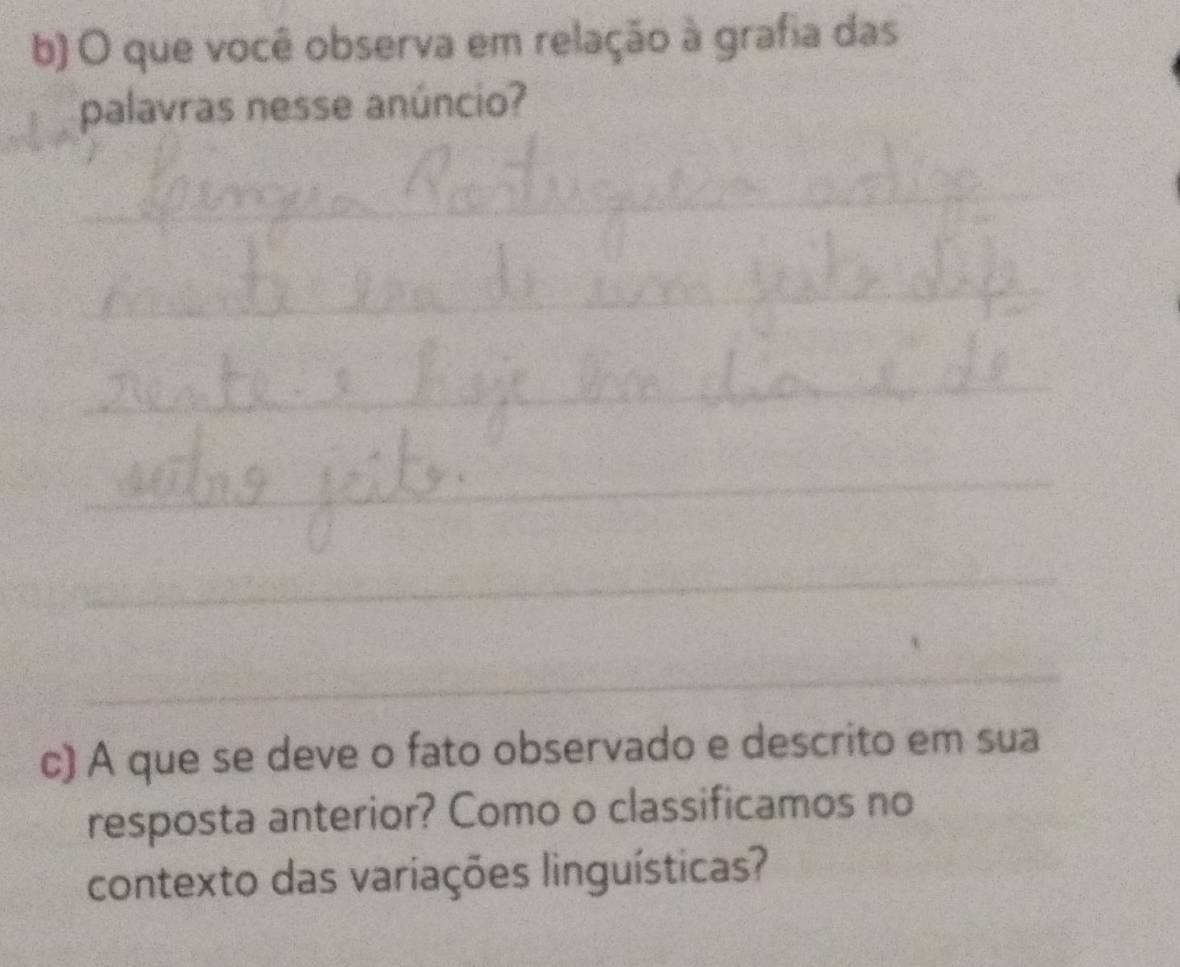 b) O que você observa em relação à grafia das
palavras nesse anúncio?
Portuguesa antiga
mente era de um jeito dife
rente e hoje em dia é de
outro jeito.
c) A que se deve o fato observado e descrito em sua
resposta anterior? Como o classificamos no
contexto das variações linguísticas?